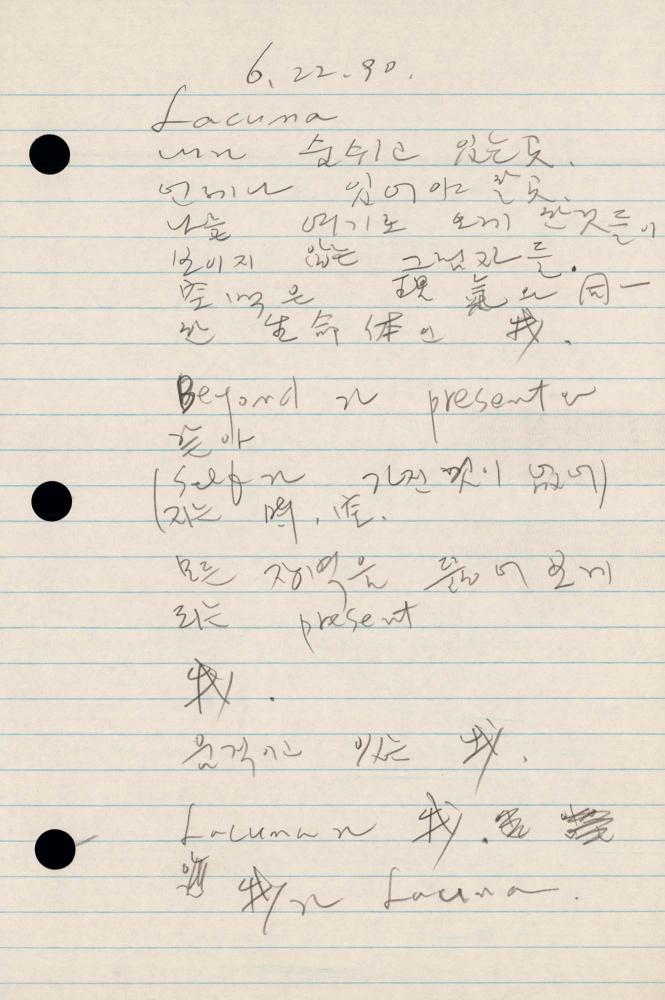 6.22.90.
Lacuna
내가 숨쉬고 있는 곳.
언제나 있어야 할 곳.
나를 여기로 오게 한 것들이
보이지 않는 그림자들.
空白은 現氣와 同一
한 生命体인 我.
Beyond가 present로
(Self가 가진 것이 없어
지는 때, 空.
모든 장벽을 뚫어 보게
되는 present
我.
움직이고 있는 我.
Lacuna가 我.
我가 Lacuna.